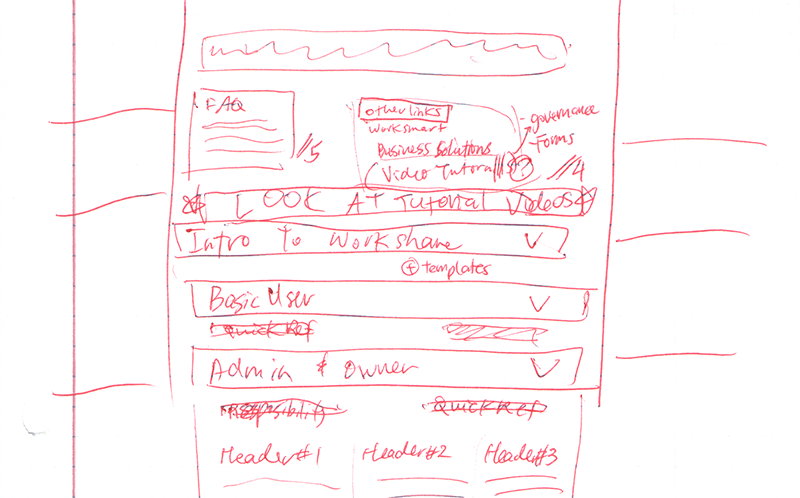 FAQ
//5
other links
worksmart
Business Solutions
Video Tutorial
?
- governance
- Forms
//4
LOOK AT Tutorial Videos
Intro To Workshare
+ templates
Basic User
Quick Ref
Admin & Owner
Responsibility
Quick Ref
Header#1
Header#2
Header#3